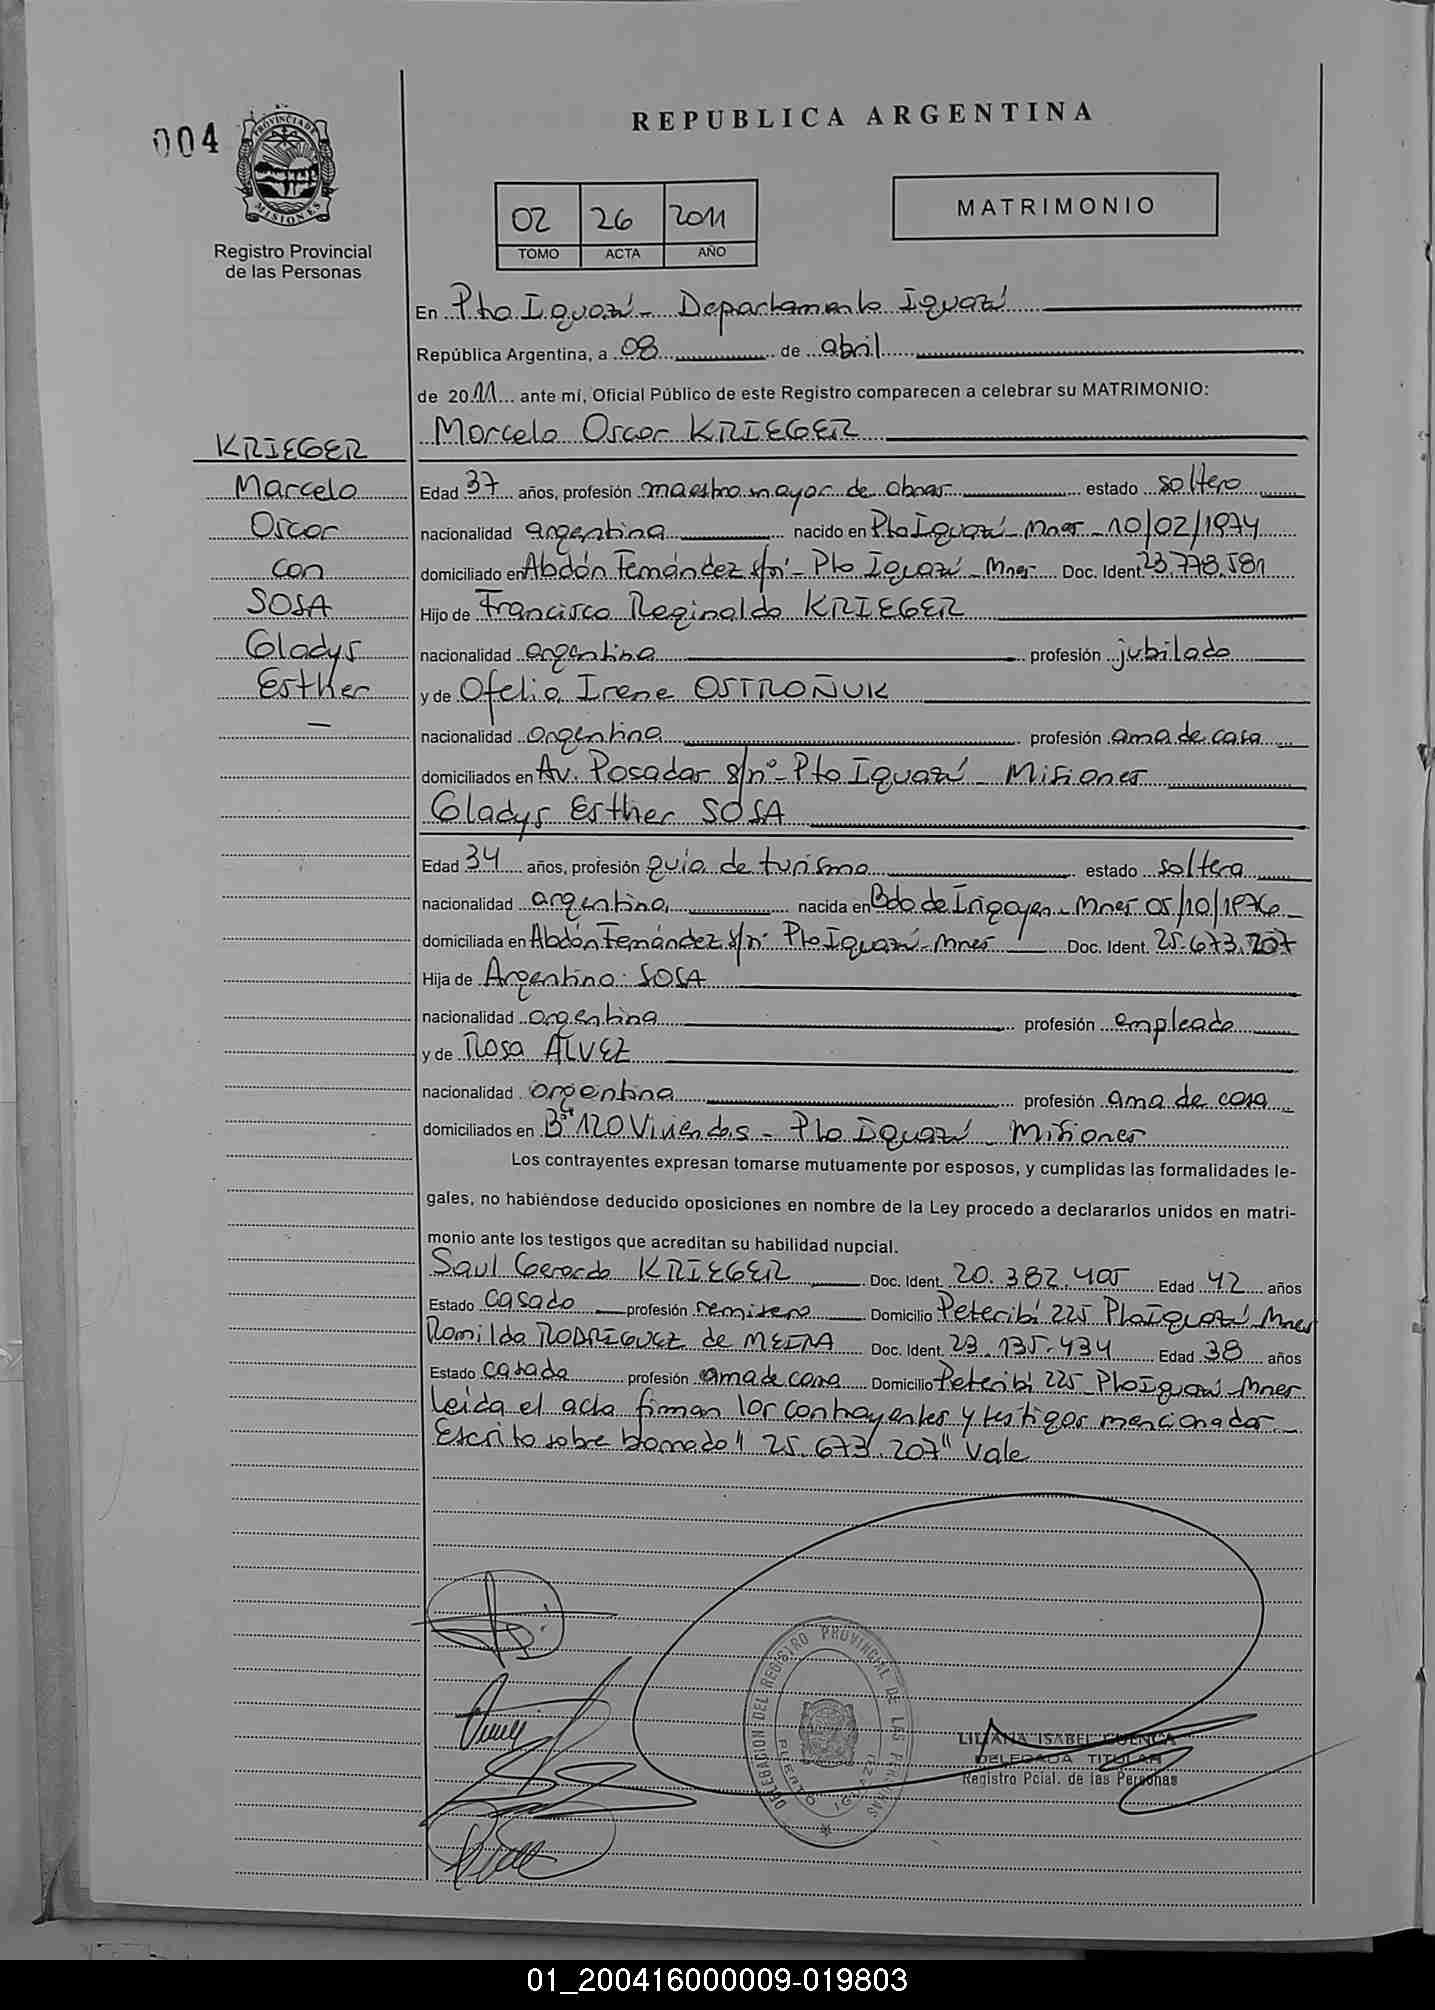 004
PROVINCIA DE
MISIONES
Registro Provincial
de las Personas
REPUBLICA ARGENTINA
02 26 2011
TOMO ACTA AÑO
MATRIMONIO
KRIEGER
Marcelo
Oscar
con
SOSA
Gladys
Esther
—
En Pto Iguazú - Departamento Iguazú
República Argentina, a 08 de abril
de 2011 ante mí, Oficial Público de este Registro comparecen a celebrar su MATRIMONIO:
Marcelo Oscar KRIEGER
Edad 37 años, profesión maestro mayor de obras estado soltero
nacionalidad argentina nacido en Pto Iguazú - Mnes - 10/02/1974
domiciliado en Abdón Fernández s/nº - Pto Iguazú - Mnes Doc. Ident. 23.778.581
Hijo de Francisco Reginaldo KRIEGER
nacionalidad argentina profesión jubilado
y de Ofelia Irene OSTROÑUK
nacionalidad argentina profesión ama de casa
domiciliados en Av. Posadas s/nº - Pto Iguazú - Misiones
Gladys Esther SOSA
Edad 34 años, profesión guía de turismo estado soltera
nacionalidad argentina nacida en Bdo de Irigoyen - Mnes 05/10/1976
domiciliada en Abdón Fernández s/nº Pto Iguazú - Mnes Doc. Ident. 25.673.207
Hija de Argentino SOSA
nacionalidad argentina profesión empleado
y de Rosa ALVEZ
nacionalidad argentina profesión ama de casa
domiciliados en Bº 120 Viviendas - Pto Iguazú - Misiones
Los contrayentes expresan tomarse mutuamente por esposos, y cumplidas las formalidades le-
gales, no habiéndose deducido oposiciones en nombre de la Ley procedo a declararlos unidos en matri-
monio ante los testigos que acreditan su habilidad nupcial.
Saul Gerardo KRIEGER Doc. Ident. 20.382.405 Edad 42 años
Estado casado profesión remisero Domicilio Peteribí 225 Pto Iguazú Mnes
Romilda RODRIGUEZ de MEIRA Doc. Ident. 23.135.434 Edad 38 años
Estado casada profesión ama de casa Domicilio Peteribí 225 - Pto Iguazú - Mnes
Leida el acta firman los contrayentes y testigos mencionados
Escrito sobre borrado "25.673.207" Vale
DELEGACION DEL REGISTRO PROVINCIAL DE LAS PERSONAS
PUERTO IGUAZU
LILIANA ISABEL CUENCA
DELEGADA TITULAR
Registro Pcial. de las Personas
01_200416000009-019803